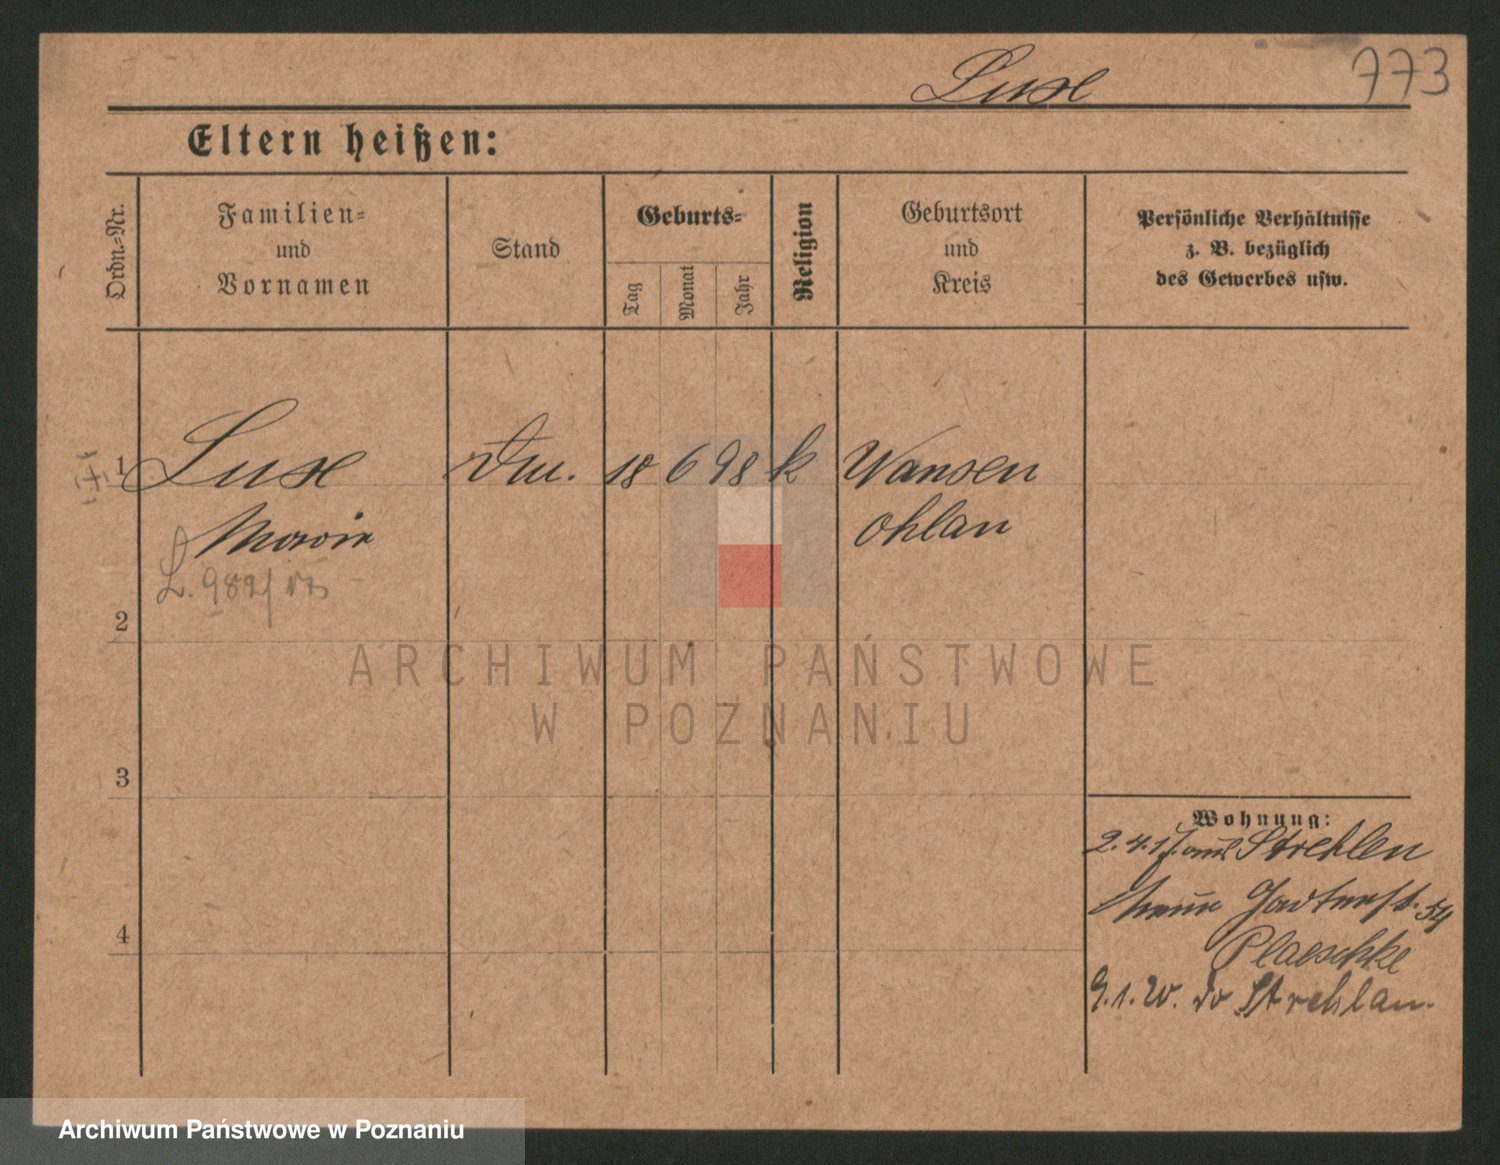 Luxe
773
Eltern heißen:
Ordn.=Nr.
Familien=
und
Vornamen
Stand
Geburts=
Tag
Monat
Jahr
Religion
Geburtsort
und
Kreis
Persönliche Verhältnisse
z. B. bezüglich
des Gewerbes usw.
1
Luxe
18
6
98
k
Wansen
Ohlau
L. 982/
2
ARCHIWUM PAŃSTWOWE
W POZNANIU
3
Wohnung:
2.4.17. aus Strehlen
54
Plaeschke
9.1.20. Strehlen.
4
Archiwum Państwowe w Poznaniu